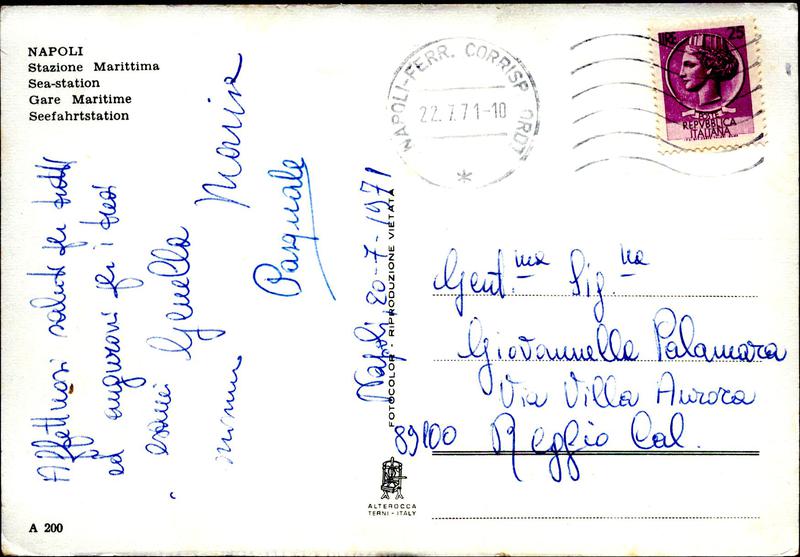 NAPOLI
Stazione Marittima
Sea-station
Gare Maritime
Seefahrtstation
Affettuosi saluti per tutti
ed auguroni per i tuoi
esami Gemella
Marisa
Pasquale
A 200
NAPOLI-FERR. CORRISP. ORDT
22.7.71-10
*
LIRE 25
POSTE
REPVBBLICA
ITALIANA
Napoli 20-7-1971
FOTOCOLOR - RIPRODUZIONE VIETATA
Gent.ma Sig.na
Giovannella Palamara
Via Villa Aurora
89100 Reggio Cal.
ALTEROCCA
TERNI - ITALY